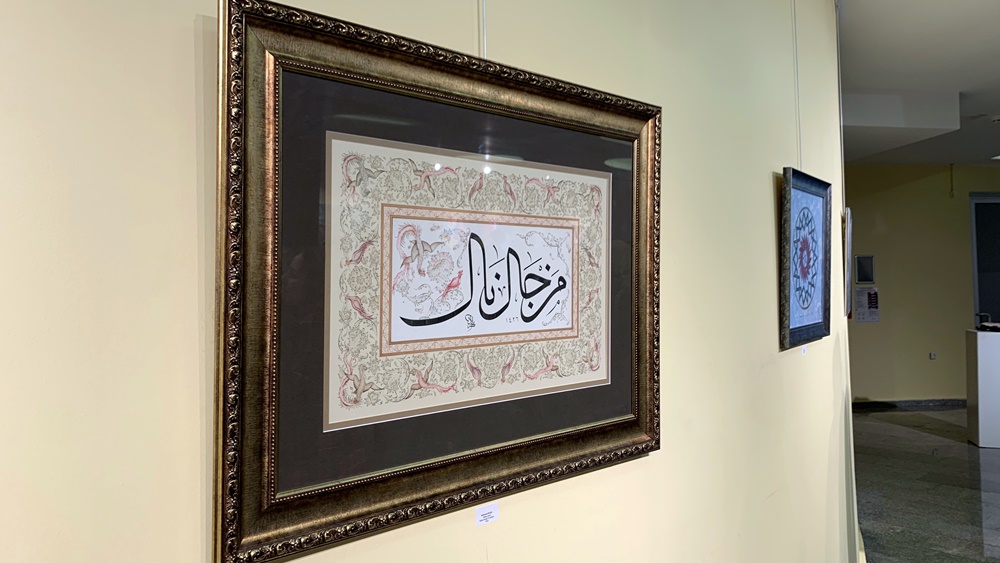 من جال نال
١٤٢٦